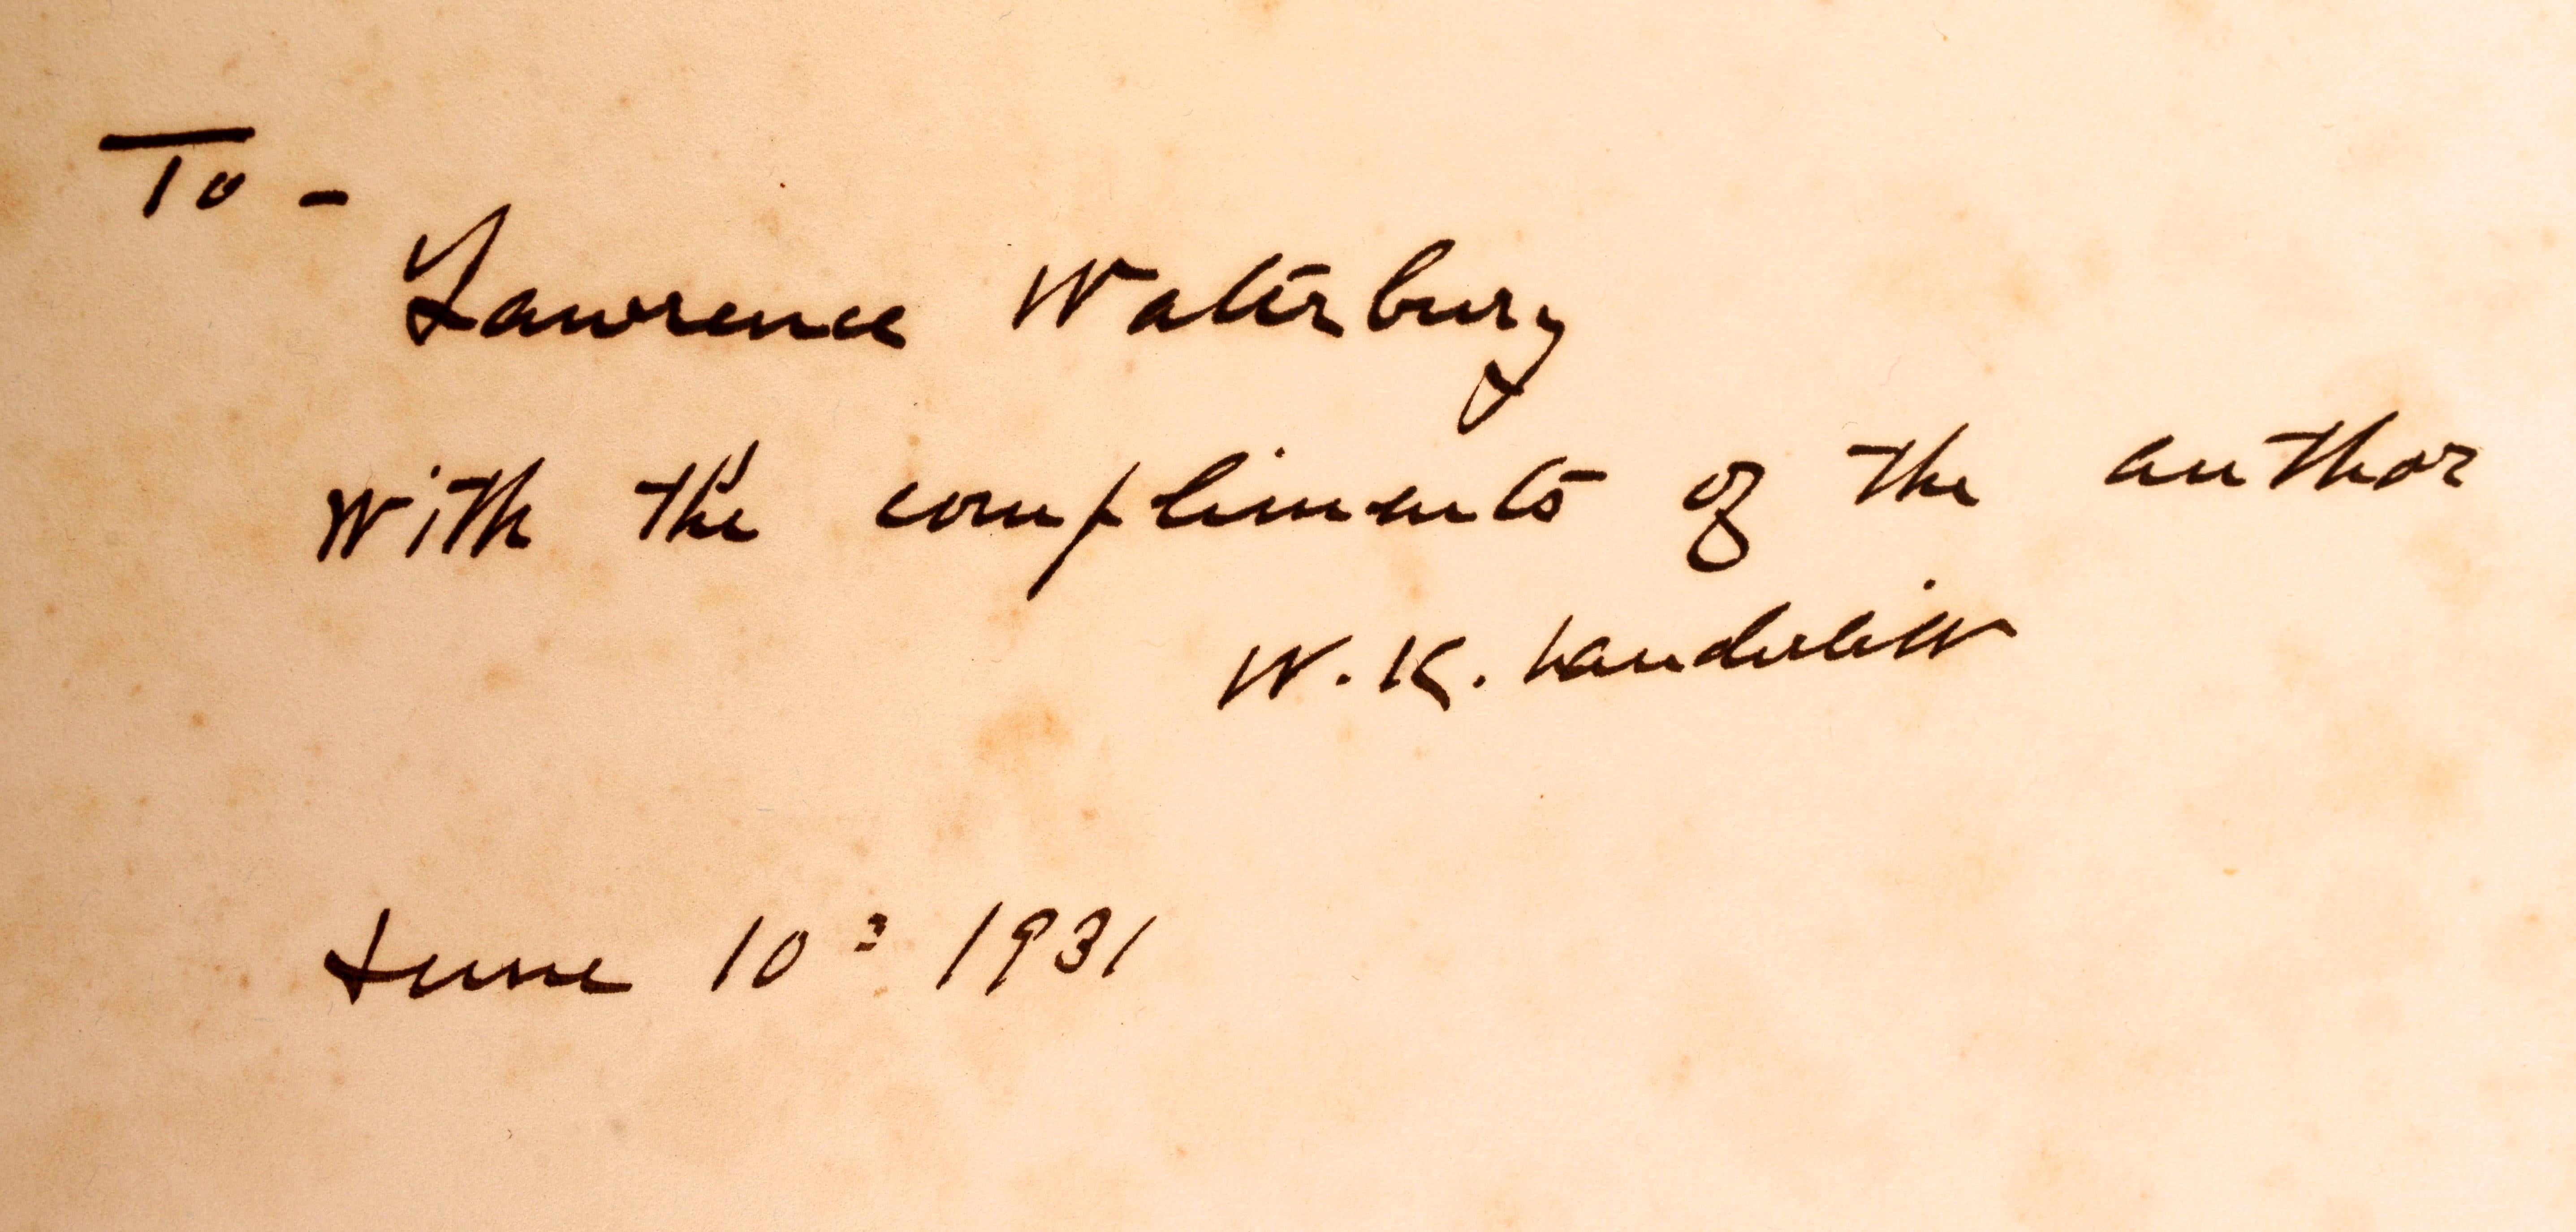 To -
Lawrence Waterbury
with the compliments of the author
W. K. Vanderbilt
June 10: 1931